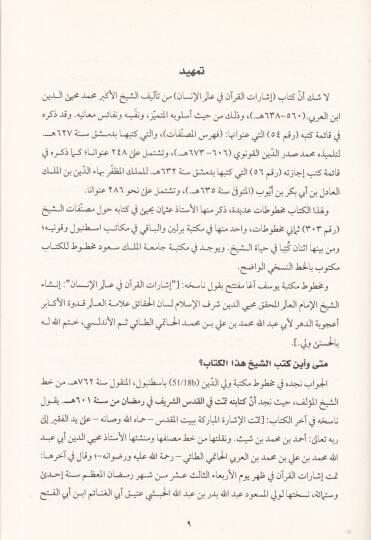 تمهيد
لا شك أنّ كتاب (إشارات القرآن في عالم الإنسان) من تأليف الشيخ الأكبر محمد محيي الدين
ابن العربي (٥٦٠-٦٣٨هـ)، وذلك من حيث أسلوبه المتميّز، ونفَسِه ونفائس معانيه. وقد ذكره
في قائمة كتبه (رقم ٥٤) التي عنوانها: (فهرس المصنّفات)، والتي كتبها بدمشق سنة ٦٢٧هـ
لتلميذه محمد صدر الدّين القونوي (٦٠٦-٦٧٣هـ)، وتشتمل على ٢٤٨ عنوانا؛ كما ذكره في
قائمة كتب إجازته (رقم ٥٦) التي كتبها بدمشق سنة ٦٣٢هـ للملك المظفّر بهاء الدّين بن الملك
العادل بن أبي بكر بن أيّوب (المتوفى سنة ٦٣٥هـ)، وتشتمل على نحو ٢٨٦ عنوانا.
ولهذا الكتاب مخطوطات عديدة، ذكر منها الأستاذ عثمان يحيى في كتابه حول مصنّفات الشيخ
(رقم ٣٠٣) ثماني مخطوطات، واحد منها في مكتبة برلين والباقي في مكاتب اسطنبول وقونيه؛
ومن بينها اثنان كُتِبا في حياة الشيخ. ويوجد في مكتبة جامعة الملك سعود مخطوط للكتاب
مكتوب بالخط النسخي الواضح.
ومخطوط مكتبة يوسف آغا مفتتح بقول ناسخه: ["إشارات القرآن في عالم الإنسان": إنشاء
الشيخ الإمام العالم المحقق محيي الدين شرف الإسلام لسان الحقائق علامة العالم قدوة الأكابر
أعجوبة الدهر لأبي عبد الله محمد بن علي بن محمد الحاتمي الطائي ثم الأندلسي، ختم الله له
بالحسنى ولي.].
متى وأين كتب الشيخ هذا الكتاب؟
الجواب نجده في مخطوط مكتبة ولي الدّين (51/18b) باسطنبول، المنقول سنة ٧٦٢هـ من خط
الشيخ المؤلف، حيث نجد أنّ كتابته تمّت في القدس الشريف في رمضان من سنة ٦٠١هـ. يقول
ناسخه في آخر الكتاب: [تمّت الإشارة المباركة ببيت المقدس – حماه الله وصانه – على يد الفقير إلى
ربه تعالى: أحمد بن محمد بن شيث. ونقلتها من خط مصنفها ومنشئها الأستاذ محيي الدين أبي عبد
الله محمد بن علي بن محمد بن العربي الحاتمي الطائي – رحمة الله عليه ورضوانه –؛ وقال في آخرها:
تمت إشارات القرآن في ظهر يوم الأربعاء الثالث عشر من شهر رمضان المعظم سنة إحدى
وستمائة، نسختها لولي المسعود عبد الله بدر بن عبد الله الحبشي عتيق أبي الغنائم ابن أبي الفتح
٩